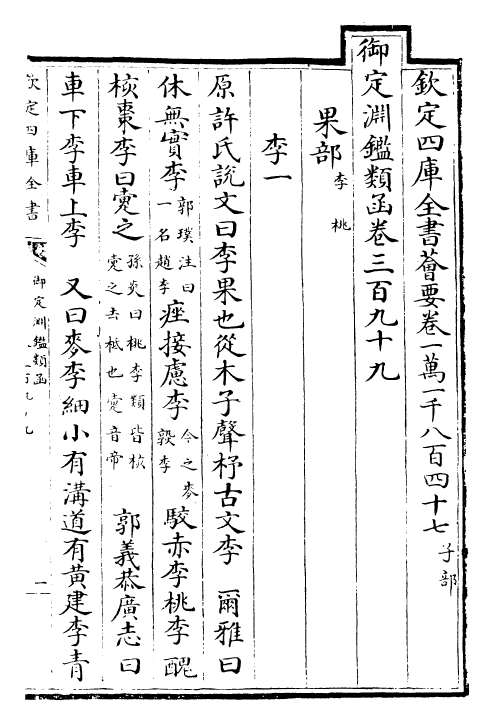 欽定四庫全書薈要卷一萬一千八百四十七 子部
御定淵鑑類函卷三百九十九
果部 李 桃
李一
原許氏說文曰李果也從木子聲杍古文李 爾雅曰
休無實李 郭璞注曰一名趙李 痤接慮李 今之麥䅽李 駮赤李桃李醜
核棗李曰疐之 孫炎曰桃李類皆核疐之去柢也疐音帝 郭義恭廣志曰
車下李車上李 又曰麥李細小有溝道有黃建李青
欽定四庫全書
御定淵鑑類函
一